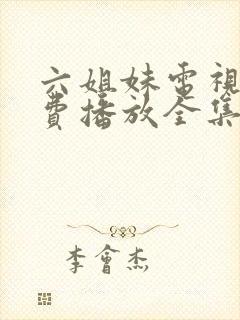 六姐妹電視
費播放全集
李會杰